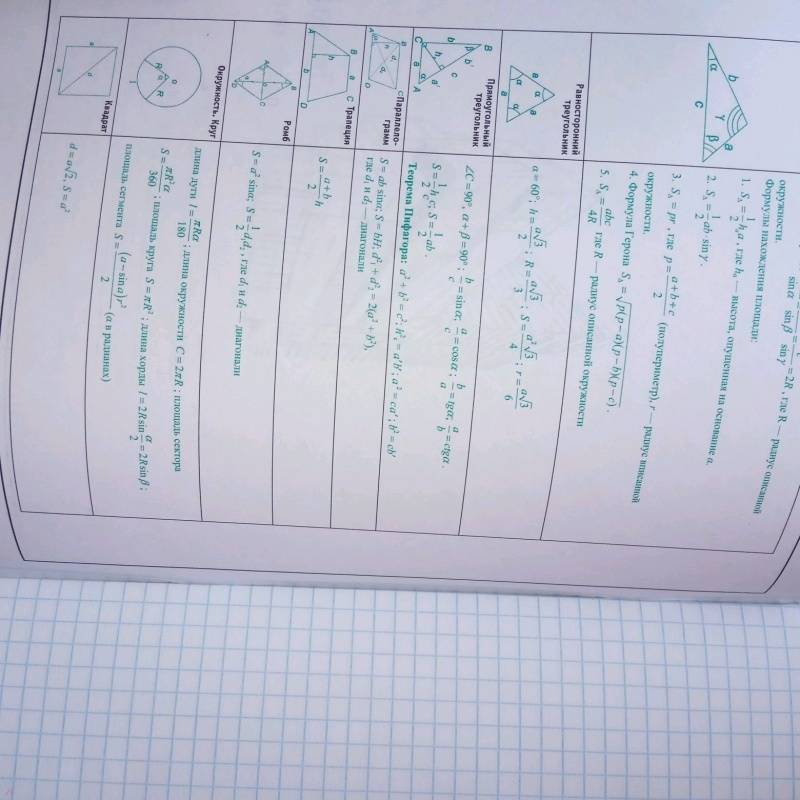 sinα sinβ sinγ = 2R, где R — радиус описанной
окружности.
Формулы нахождения площади:
1. S_Δ = 1/2 h_a a, где h_a — высота, опущенная на основание a.
2. S_Δ = 1/2 ab·sinγ.
3. S_Δ = pr, где p = (a+b+c)/2 (полупериметр), r — радиус вписанной
окружности.
4. Формула Герона S_Δ = √(p(p−a)(p−b)(p−c)).
5. S_Δ = abc/4R где R — радиус описанной окружности
b γ a
α c β
Равносторонний
треугольник
a α a
α a α
α = 60°, h = a√3/2; R = a√3/3; S = a²√3/4; r = a√3/6
Прямоугольный
треугольник
B
b β b'
h c
C a A a'
∠C = 90°, α + β = 90°; b/c = sinα; a/c = cosα; b/a = tgα; a/b = ctgα.
S = 1/2 h_c c; S = 1/2 ab.
Теорема Пифагора: a² + b² = c²; h²_c = a'b'; a² = ca'; b² = cb'
Параллело-
грамм
A B C D
S = ab sinα; S = bH; d²₁ + d²₂ = 2(a² + b²),
где d₁ и d₂ — диагонали
Трапеция
B a C
h
A b D
S = (a+b)/2 h
Ромб
S = a² sinα; S = 1/2 d₁d₂, где d₁ и d₂ — диагонали
Окружность. Круг
O
R α R
l
длина дуги l = πRα/180; длина окружности C = 2πR; площадь сектора
S = πR²α/360; площадь круга S = πR²; длина хорды l = 2R sin α/2 = 2R sinβ;
площадь сегмента S = (α − sinα)r²/2 (α в радианах)
Квадрат
a
d
a
d = a√2; S = a²